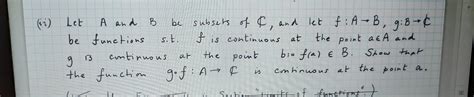 (vi) Let A and B be subsets of ℂ, and let f : A → B, g : B → ℂ
be functions s.t. f is continuous at the point a ∈ A and
g is continuous at the point b := f(a) ∈ B. Show that
the function g∘f : A → ℂ is continuous at the point a.
"limits of functions"